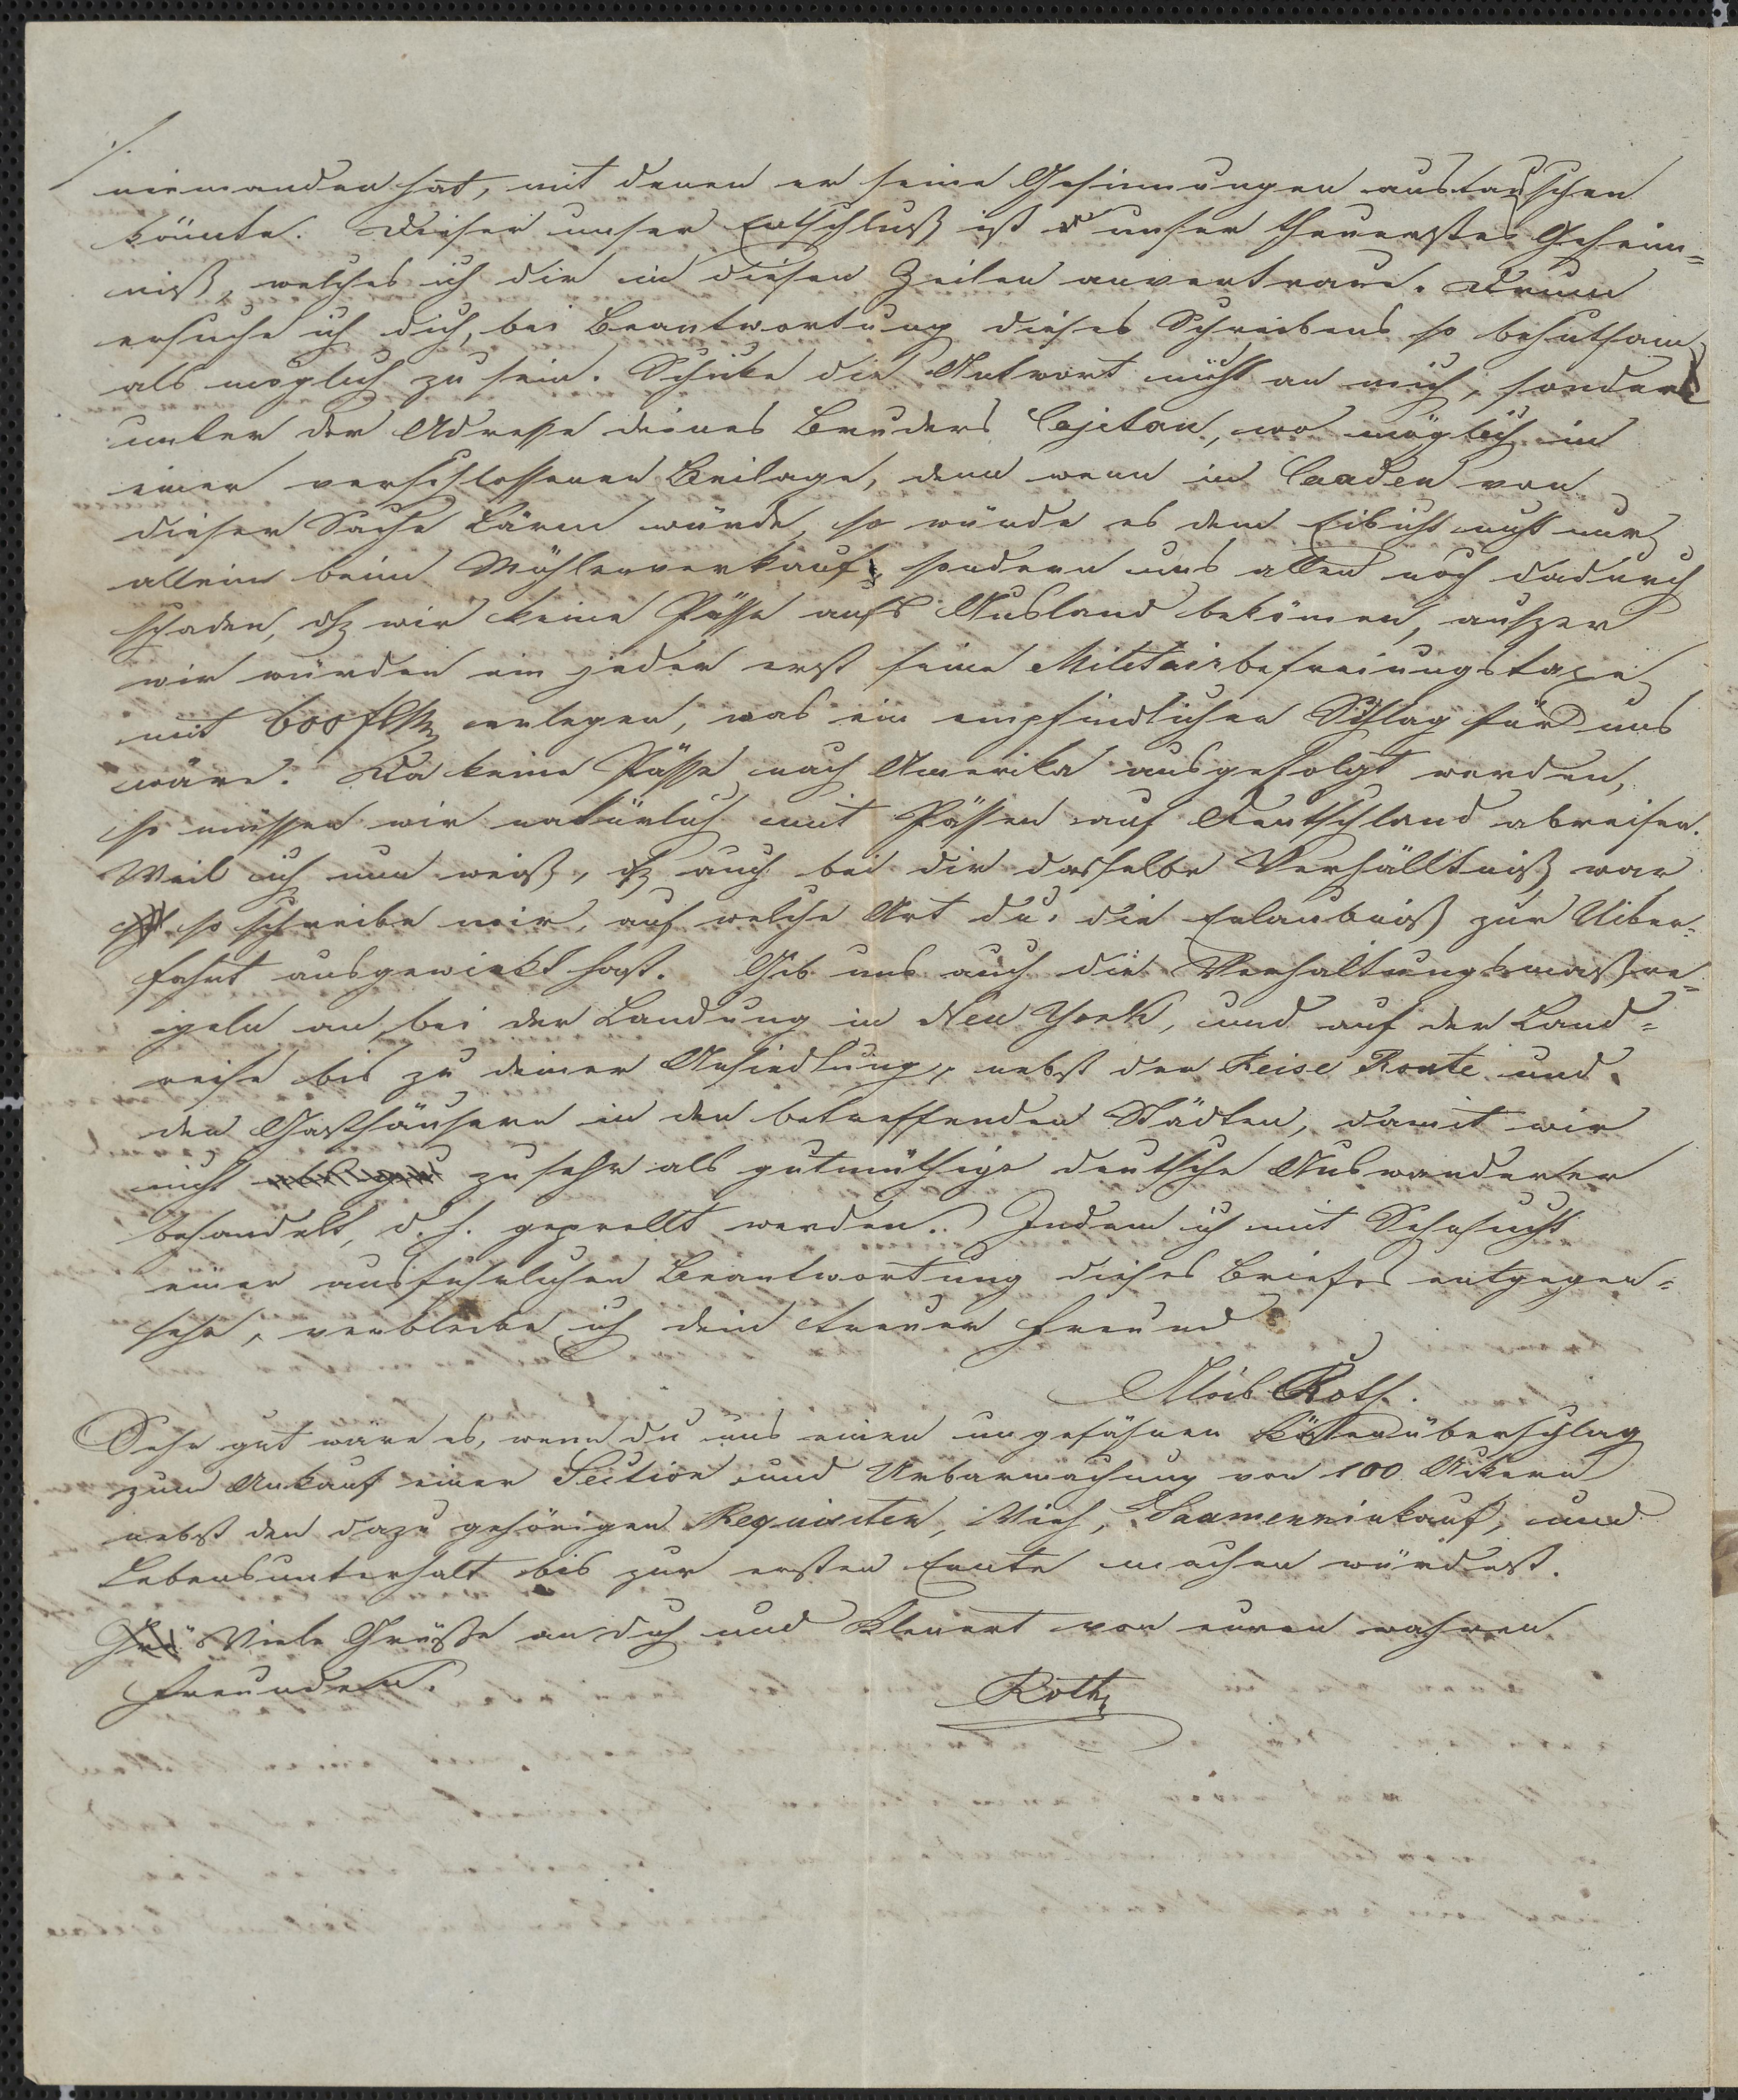 ./.
niemanden hat, mit denen er seine Gesinnungen austauschen
könnte. Dieser unser Entschluß ist unser theuerstes Geheim=
niß, welches ich dir in diesen Zeilen anvertraue. Drum
ersuche ich dich, bei Beantwortung dieses Schreibens so behutsam
als möglich zu sein. Schicke die Antwort nicht an mich, sondern
unter der Adresse deines Bruders Cajetan, wo möglich in
einer verschlossenen Beilage, denn wenn in Caaden von
dieser Sache Lärm würde, so würde es dem Eibicht nicht nur
allein beim Mühlenverkauf, sondern uns allen noch dadurch
schaden, dß wir keine Pässe aufs Ausland bekömen, auszer
wir würden ein jeder erst seine Militairbefreiungstaxe
mit 600 fl erlegen, was ein empfindlicher Schlag für uns
wäre. Da keine Pässe nach Amerika ausgefolgt werden,
so müssen wir natürlich mit Pässen auf Deutschland abreisen.
Weil ich nun weiß, dß auch bei dir dasselbe Verhälltniß war
so schreibe mir, auf welche Art du die Erlaubniß zur Uiber=
fahrt ausgewirkt hast. Gib uns auch die Verhaltungsmaßre=
geln an bei der Landung in New York, und auf der Land=
reise bis zu deiner Ansiedlung, nebst der Reise Route und
den Gasthäusern in den betreffenden Städten, damit wir
nicht zu sehr als gutmüthige deutsche Auswanderer
behandelt, d. h. geprellt werden. Indem ich mit Sehnsucht
einer ausführlichen Beantwortung dieses Briefes entgegen=
sehe, verbleibe ich dein treuer Freund
Alois Roth.
Sehr gut wäre es, wenn du uns einen ungefähren Kostenüberschlag
zum Ankauf einer Section und Urbarmachung von 100 Ackern
nebst den dazu gehörigen Requisiten, Vieh, Saamereinkauf, und
Lebensunterhalt bis zur ersten Ernte machen würdest.
Viele Grüße an dich und Klenert von euren wahren
Freunden.
Roth